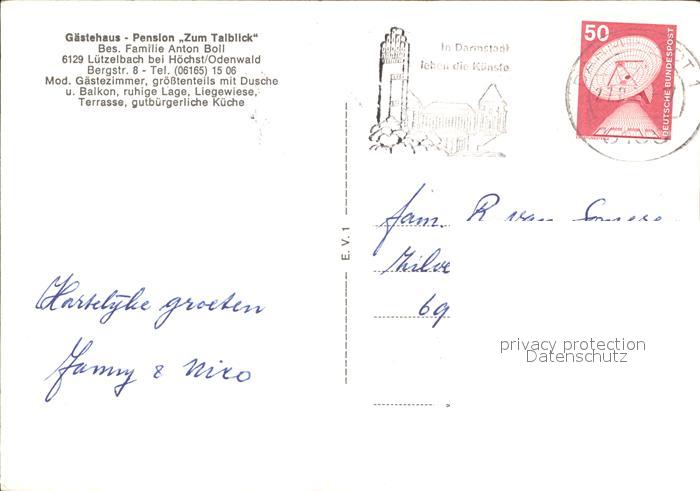 Gästehaus - Pension „Zum Talblick“
Bes. Familie Anton Boll
6129 Lützelbach bei Höchst/Odenwald
Bergstr. 8 - Tel. (06165) 15 06
Mod. Gästezimmer, größtenteils mit Dusche
u. Balkon, ruhige Lage, Liegewiese,
Terrasse, gutbürgerliche Küche
In Darmstadt
leben die Künste
50
DEUTSCHE BUNDESPOST
E. V. 1
fam. R van
69
Hartelijke groeten
Fanny & Nico
privacy protection
Datenschutz